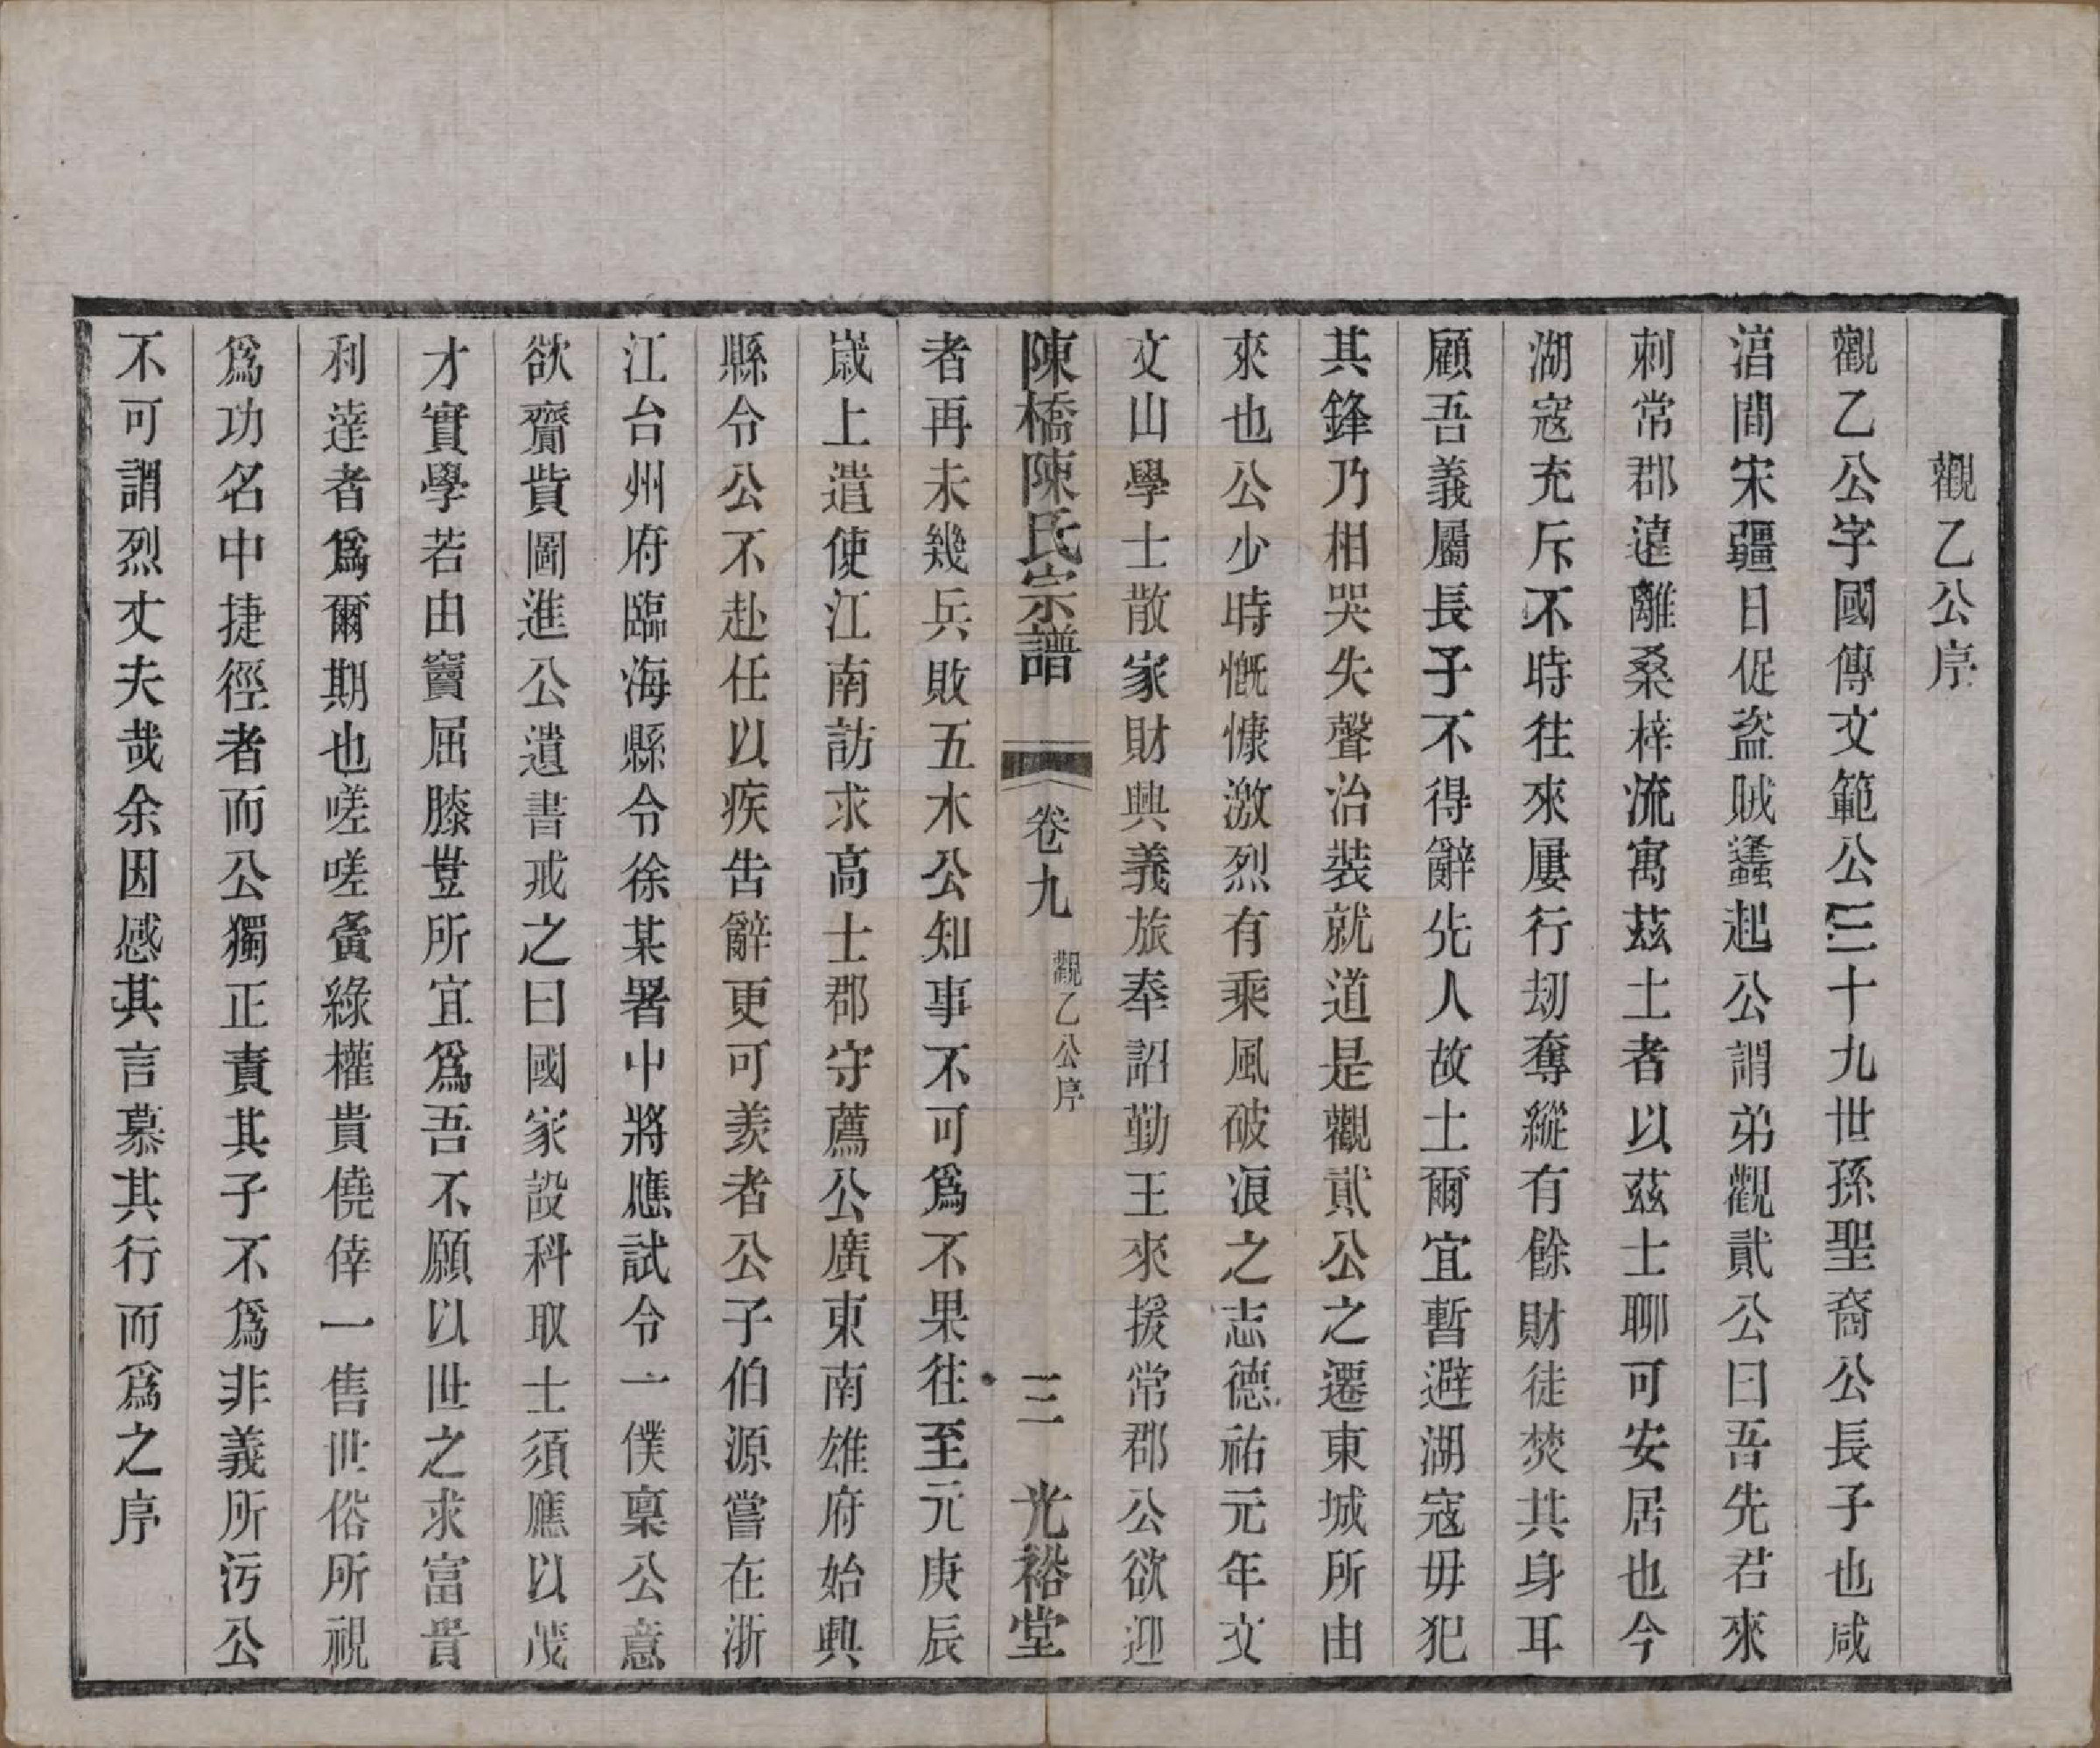 觀乙公序
觀乙公字國傳文範公三十九世孫聖裔公長子也咸
淳間宋疆日促盗賊蠭起公謂弟觀貳公曰吾先君來
刺常郡遠離桑梓流寓茲土者以茲士聊可安居也今
湖寇充斥不時往來屢行刼奪縱有餘財徒焚其身耳
顧吾義屬長子不得辭先人故土爾宜暫避湖寇毋犯
其鋒乃相哭失聲治裝就道是觀貳公之遷東城所由
來也公少時慨慷激烈有乘風破浪之志德祐元年文
文山學士散家財興義旅奉詔勤王來援常郡公欲迎
陳橋陳氏宗譜 卷九 觀乙公序 三 光裕堂
者再未幾兵敗五木公知事不可爲不果往至元庚辰
嵗上遣使江南訪求高士郡守薦公廣東南雄府始興
縣令公不赴任以疾告辭更可羨者公子伯源嘗在浙
江台州府臨海縣令徐某署中將應試令一僕稟公意
欲齎貲圖進公遺書戒之曰國家設科取士須應以茂
才實學若由竇屈膝豈所宜爲吾不願以世之求富貴
利達者爲爾期也嗟嗟夤緣權貴僥倖一售世俗所視
爲功名中捷徑者而公獨正責其子不爲非義所污公
不可謂烈丈夫哉余因感其言慕其行而爲之序